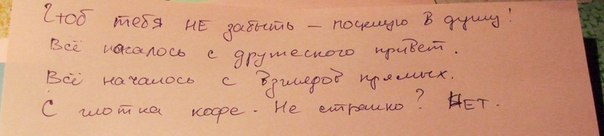 Чтоб тебя не забыть – поющую в душу!
Всё началось с дружеского привет.
Всё началось с взглядов прямых.
С глотка кофе. Не страшно? Нет.